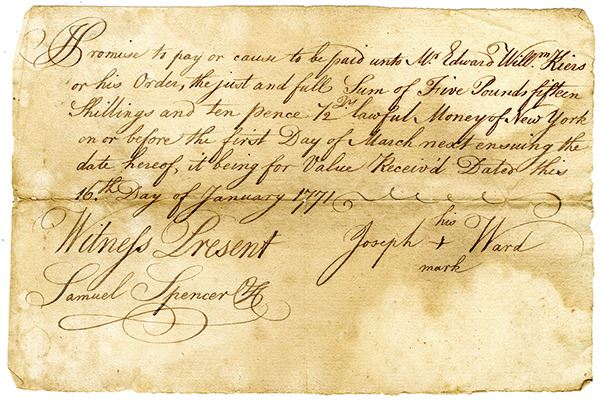 I Promise to pay or cause to be paid unto Mr Edward Willm Kiers
or his Order, the just and full Sum of Five Pounds fifteen
Shillings and ten pence 1/2 lawful Money of New York
on or before the first Day of March next ensuing the
date hereof, it being for Value Receiv'd Dated this
16th Day of January 1771
Witness Present
Joseph his + mark Ward
Samuel Spencer